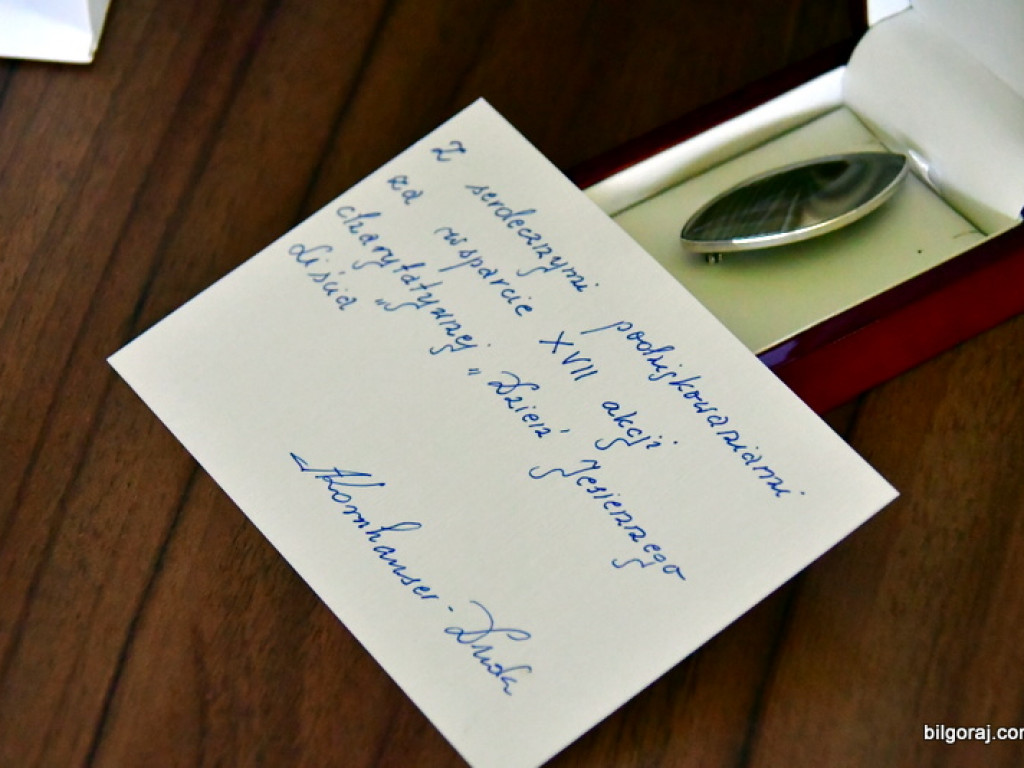 Z serdecznymi podziękowaniami
za wsparcie XVII akcji
charytatywnej „Dzień Jesiennego
Liścia"
AKornhauser-Duda
bilgoraj.com